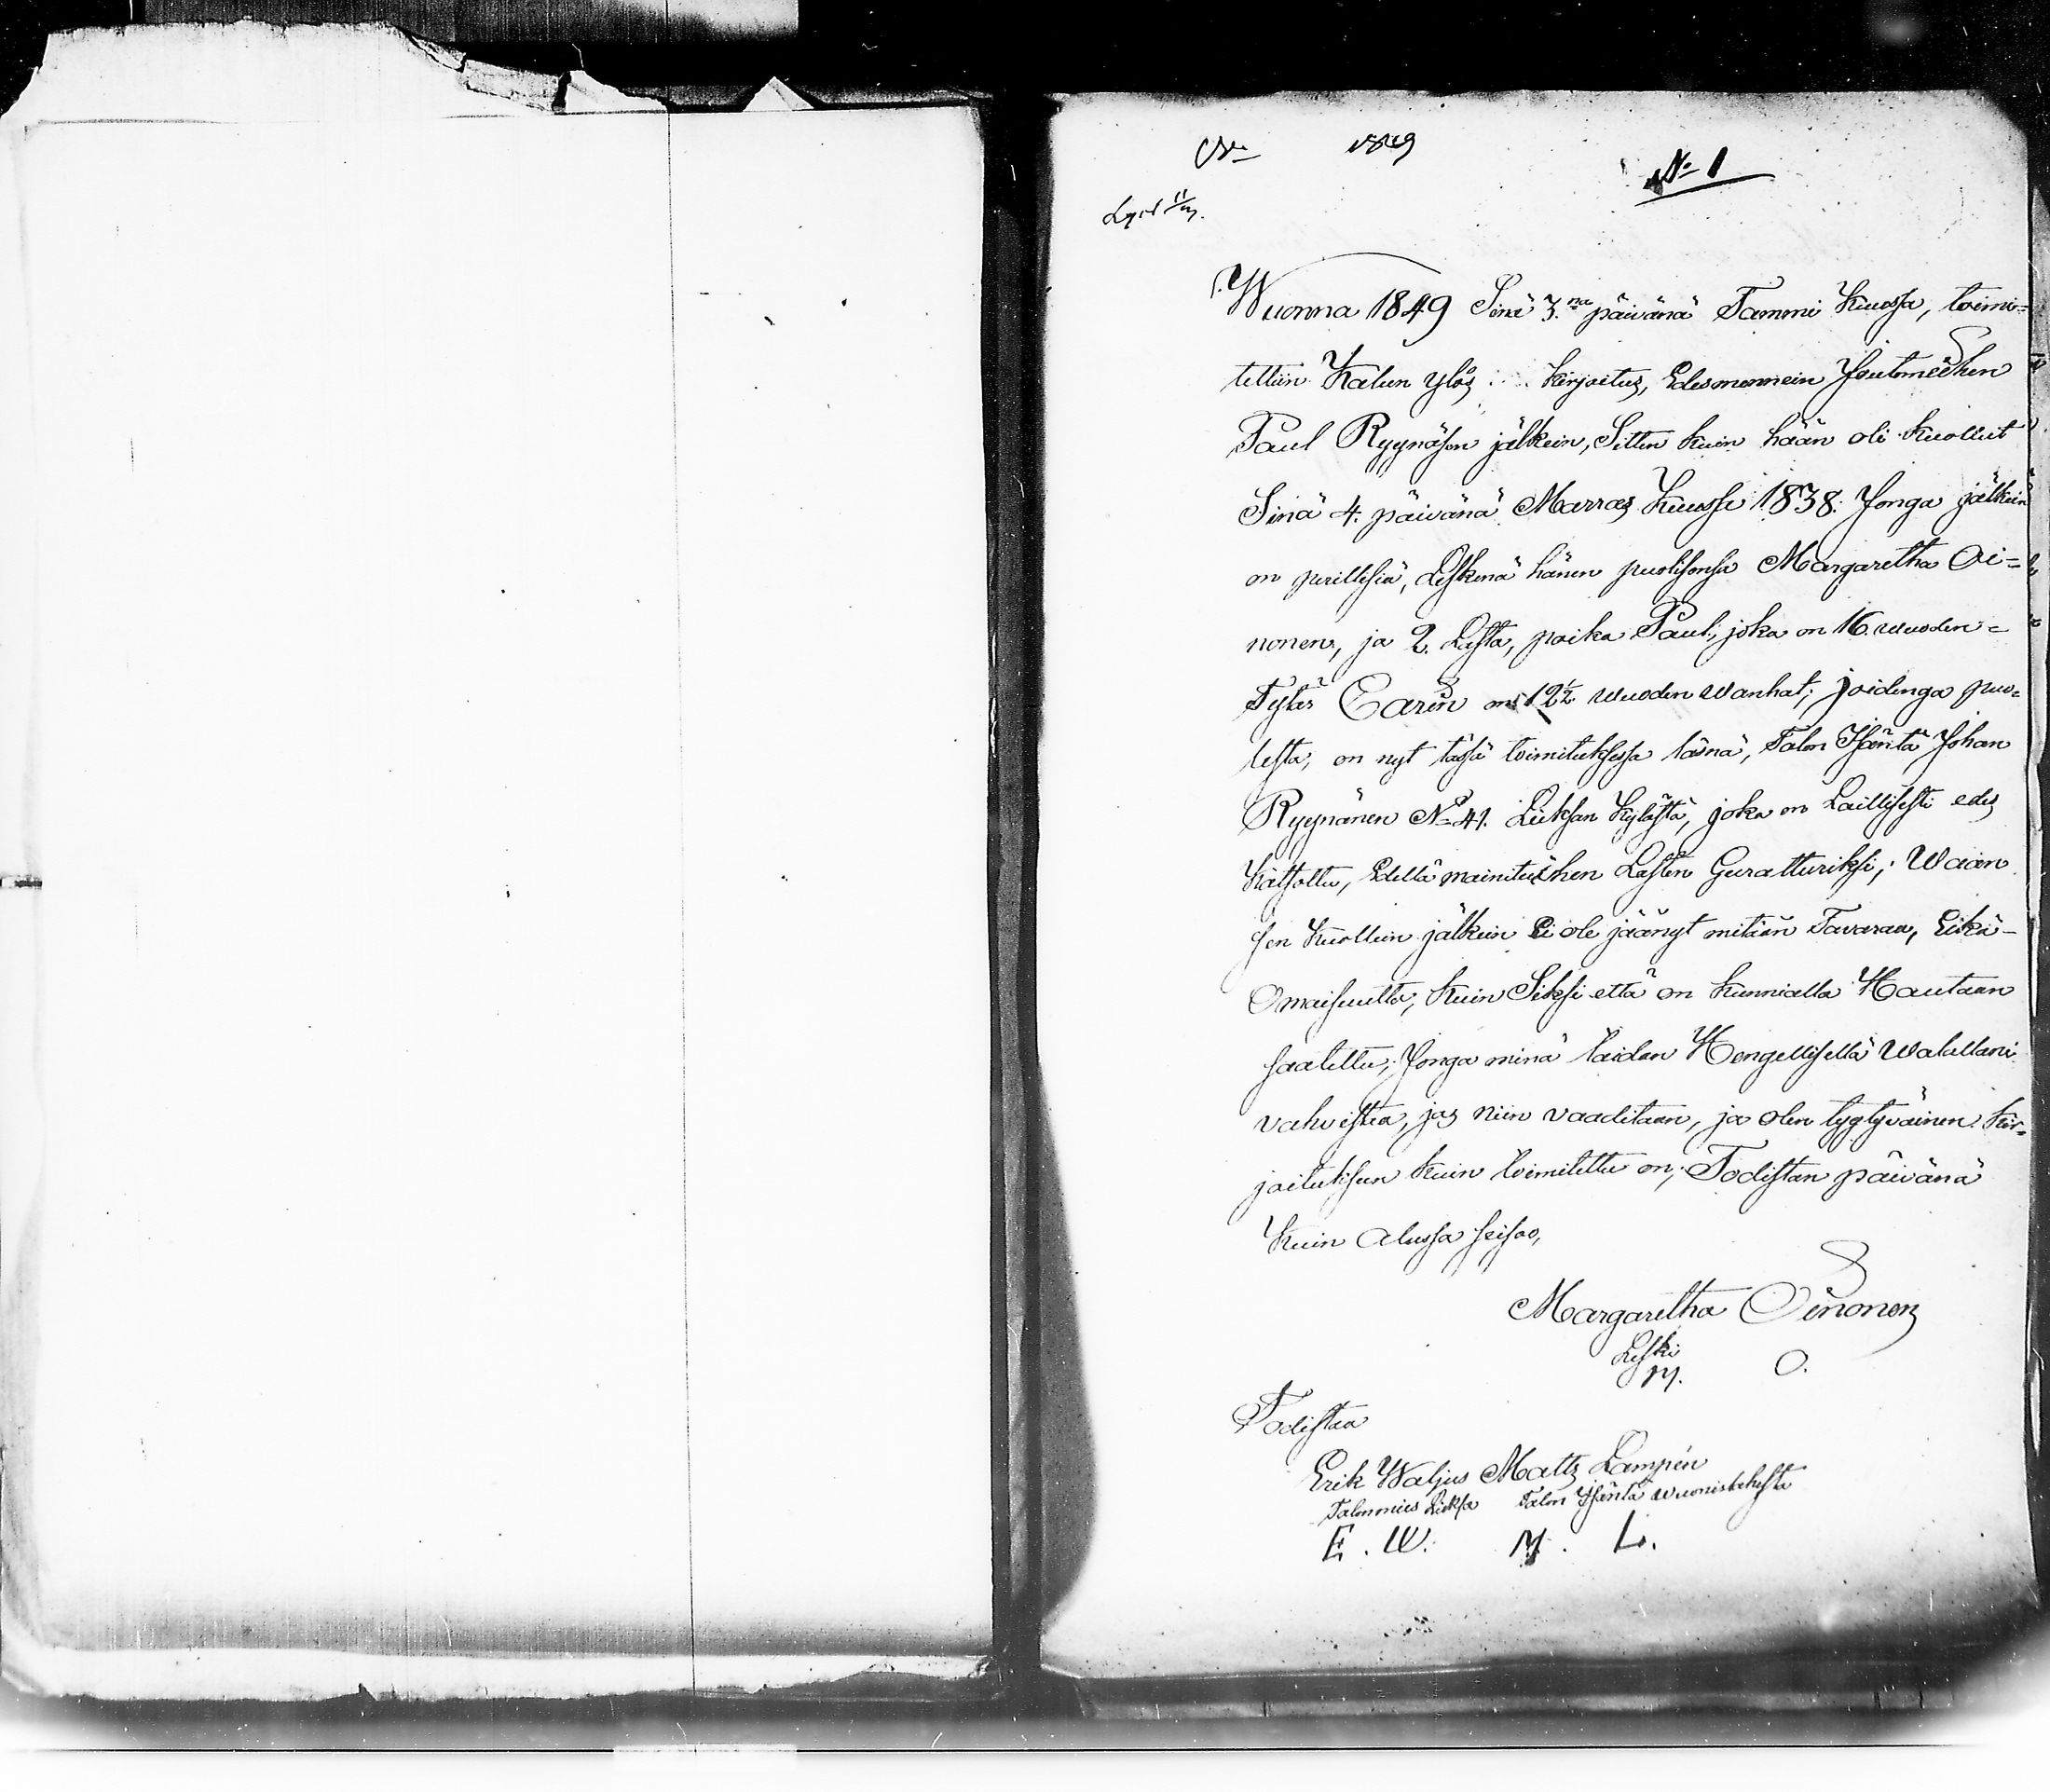 1849
No 1
Wuonna 1849 Sinä 3.na päivänä Tammi Kuussa, toimi=
tettiin Kalun ylös kirjoitus, Edesmennein Joutmiehen
Paul Ryynäsen jälkein, Sitten kuin hään oli kuollut
Sinä 4. päivänä Marras Kuussa 1838. Jonga jälkein
on perillisiä, Leskenä hänen puolisonsa Margaretha Oi=
nonen, ja 2. Lasta, poika Paul, joka on 16 wuoden=
Tytär Carin on 12½ wuoden wanhat; joidenga puo=
lesta, on nyt tässä toimituksessa läsnä, Talon Isäntä Johan
Ryynänen No 41. Lieksan Kylästä, joka on Laillisesti edes
Katsottu, Edellä mainituihen Lasten Guratturiksi; Waan
sen Kuollein jälkein Ei ole jäänyt mitään Tavaraa, Eikä-
Omaisuutta, kuin Siksi että on kunnialla Hautaan
saatettu; Jonga minä taidan Hengellisellä Walallani
vahvistaa, jos niin vaaditaan, ja olen tyytyväinen kir=
joituksen kuin toimitettu on; Todistan päivänä
Kuin Alussa seisoo,
Margaretha Oinonen
Leski
M. O.
Todistaa
Erik Waljus Matts Lampén
Talonmies Lieksa Talon Isäntä Wuonislahesta
E. W. M. L.